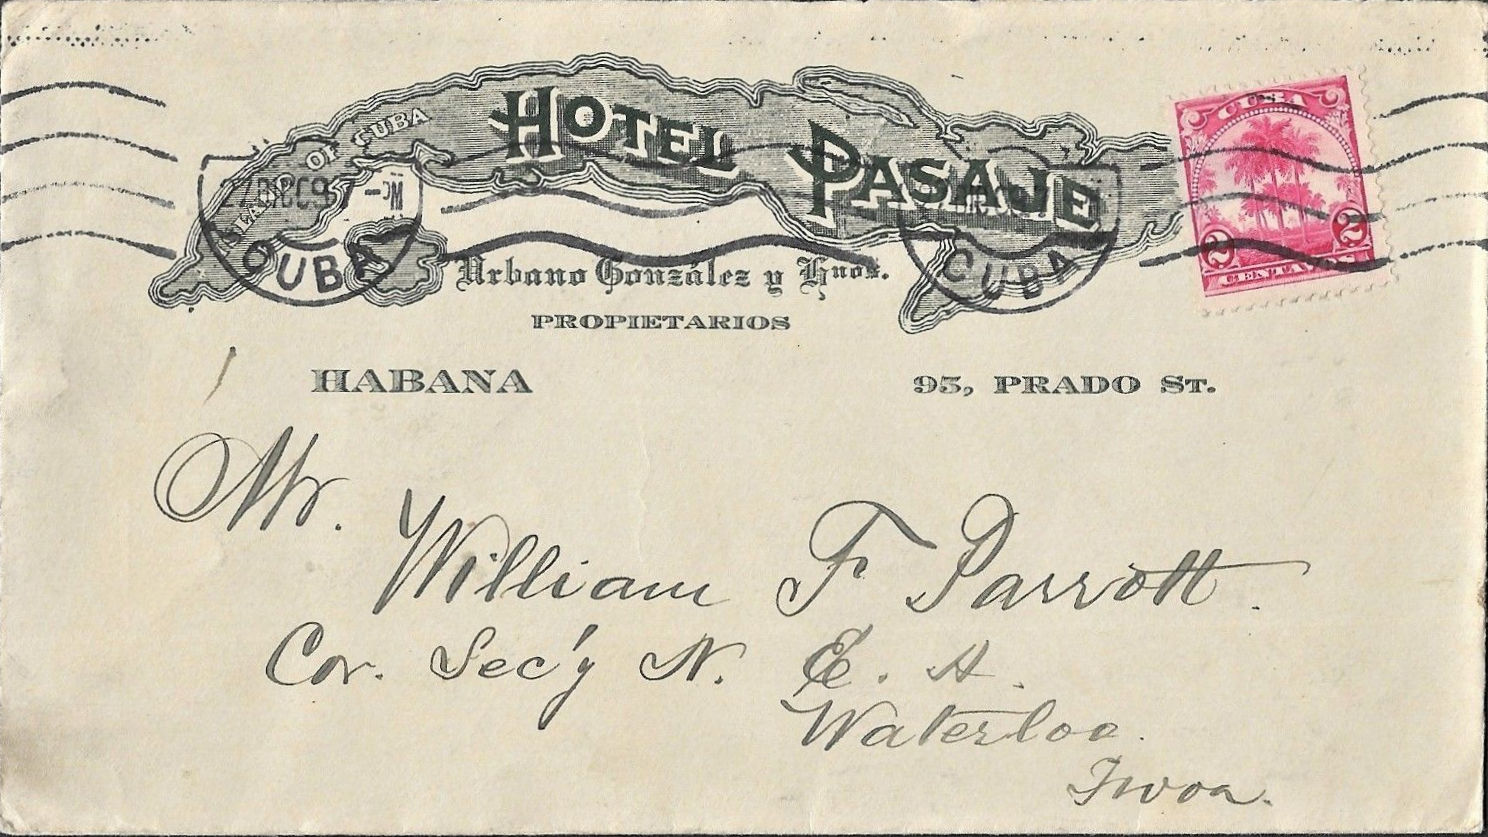 CUBA
HOTEL PASAJE
ISLAND OF CUBA
2 2
CENTAVOS
CUBA
CUBA
Urbano González y Hnos.
PROPIETARIOS
HABANA 95, PRADO ST.
Mr.
William F Parrott.
Cor. Sec'y N. E. A.
Waterloo.
Iwoa.